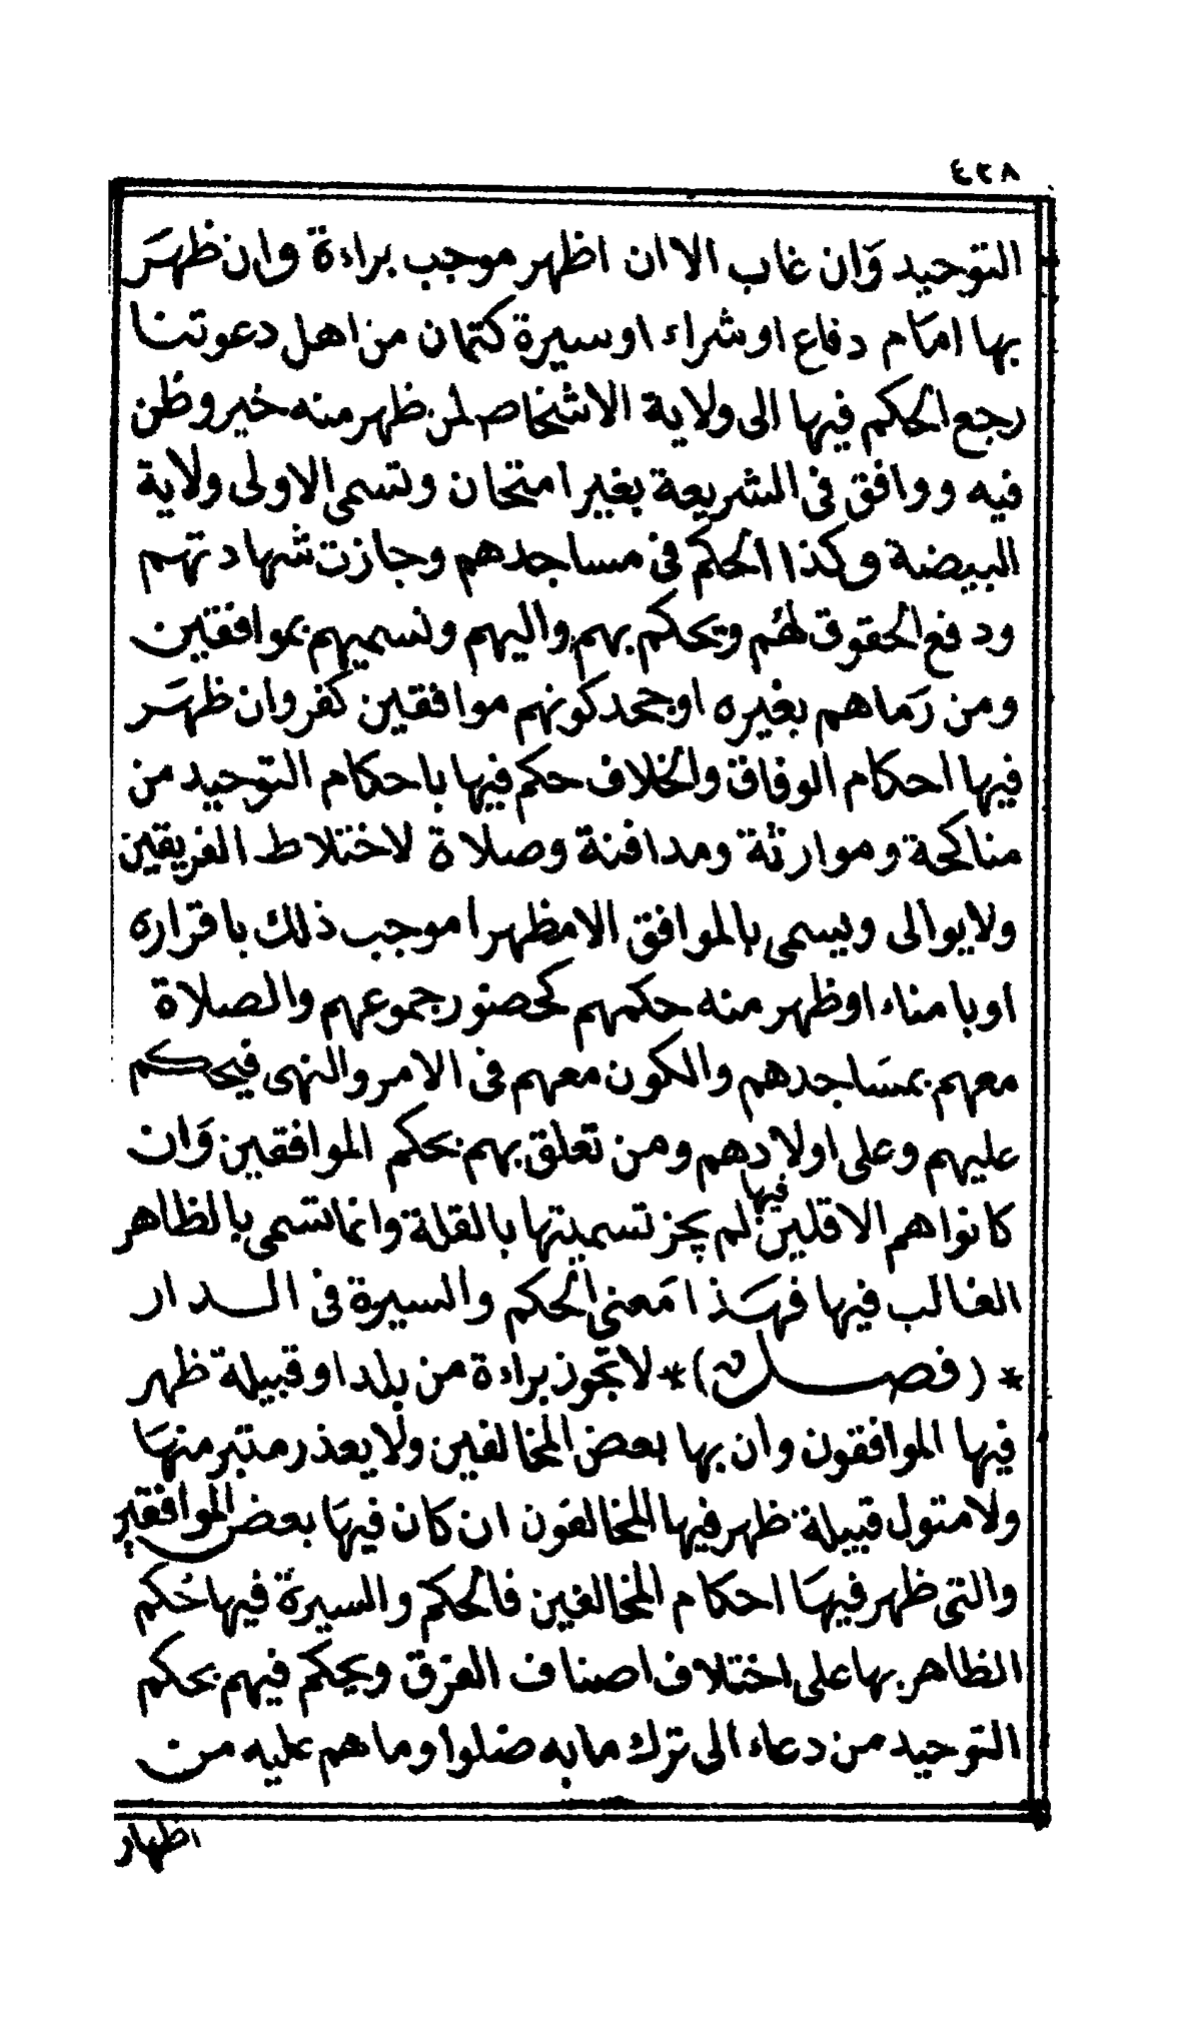 ٤٢٨
التوحيد وَان غاب الا ان اظهر موجب براءة وان ظهَر
بها امَام دفاع او شراء او سيرة كتمان من اهل دعوتنا
رجع الحكم فيها الى ولاية الاشخاص لمن ظهر منه خير وظن
فيه ووافق فى الشريعة بغير امتحان وتسمى الاولى ولاية
البيضة وكذا الحكم فى مساجدهم وجازت شهادتهم
ودفع الحقوق لهُم ويحكم بهم واليهم ونسميهم بموافقين
ومن رَماهم بغيره او جحد كونهم موافقين كفر وان ظهَر
فيها احكام الوفاق والخلاف حكم فيها باحكام التوحيد من
مناكحة وموارثة ومدافنة وصلاة لاختلاط الفريقين
ولا يوالى ويسمى بالموافق الا مظهرا موجب ذلك باقراره
او بامناء او ظهر منه حكمهم كحضور جموعهم والصلاة
معهم بمسَاجدهم والكون معهم فى الامر والنهى فيحكم
عليهم وعلى اولادهم ومن تعلق بهم بحكم الموافقين وَان
كانوا هم الاقلين فيها لم يجز تسميتها بالقلة وانما تسمى بالظاهر
الغالب فيها فهَذا مَعنى الحكم والسيرة فى الدار
* (فصل) * لا تجوز براءة من بلد او قبيلة ظهر
فيها الموافقون وان بها بعض المخالفين ولا يعذر متبر منهَا
ولا متول قبيلة ظهر فيها المخالفون ان كان فيهَا بعض الموافقين
والتى ظهر فيهَا احكام المخالفين فالحكم والسيرة فيها حُكم
الظاهر بها على اختلاف اصناف الفرق ويحكم فيهم بحكم
التوحيد من دعاء الى ترك ما به ضلوا وما هم عليه من
اظهار